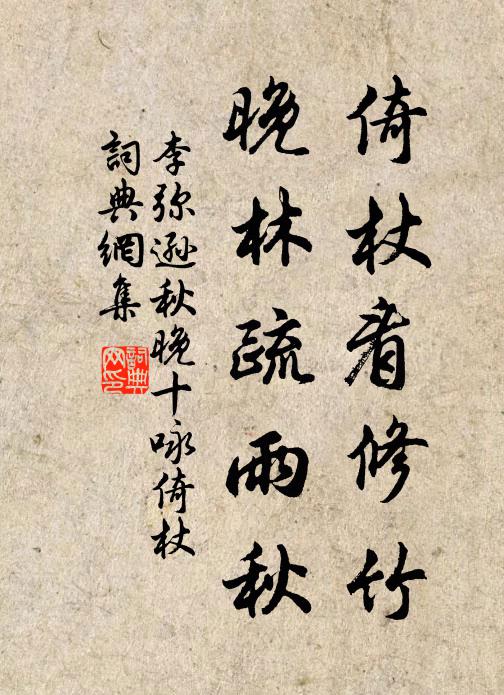 倚杖看修竹
晚林疏雨秋
李弥遜秋晚十咏倚杖
詞典網集
詞典
网印